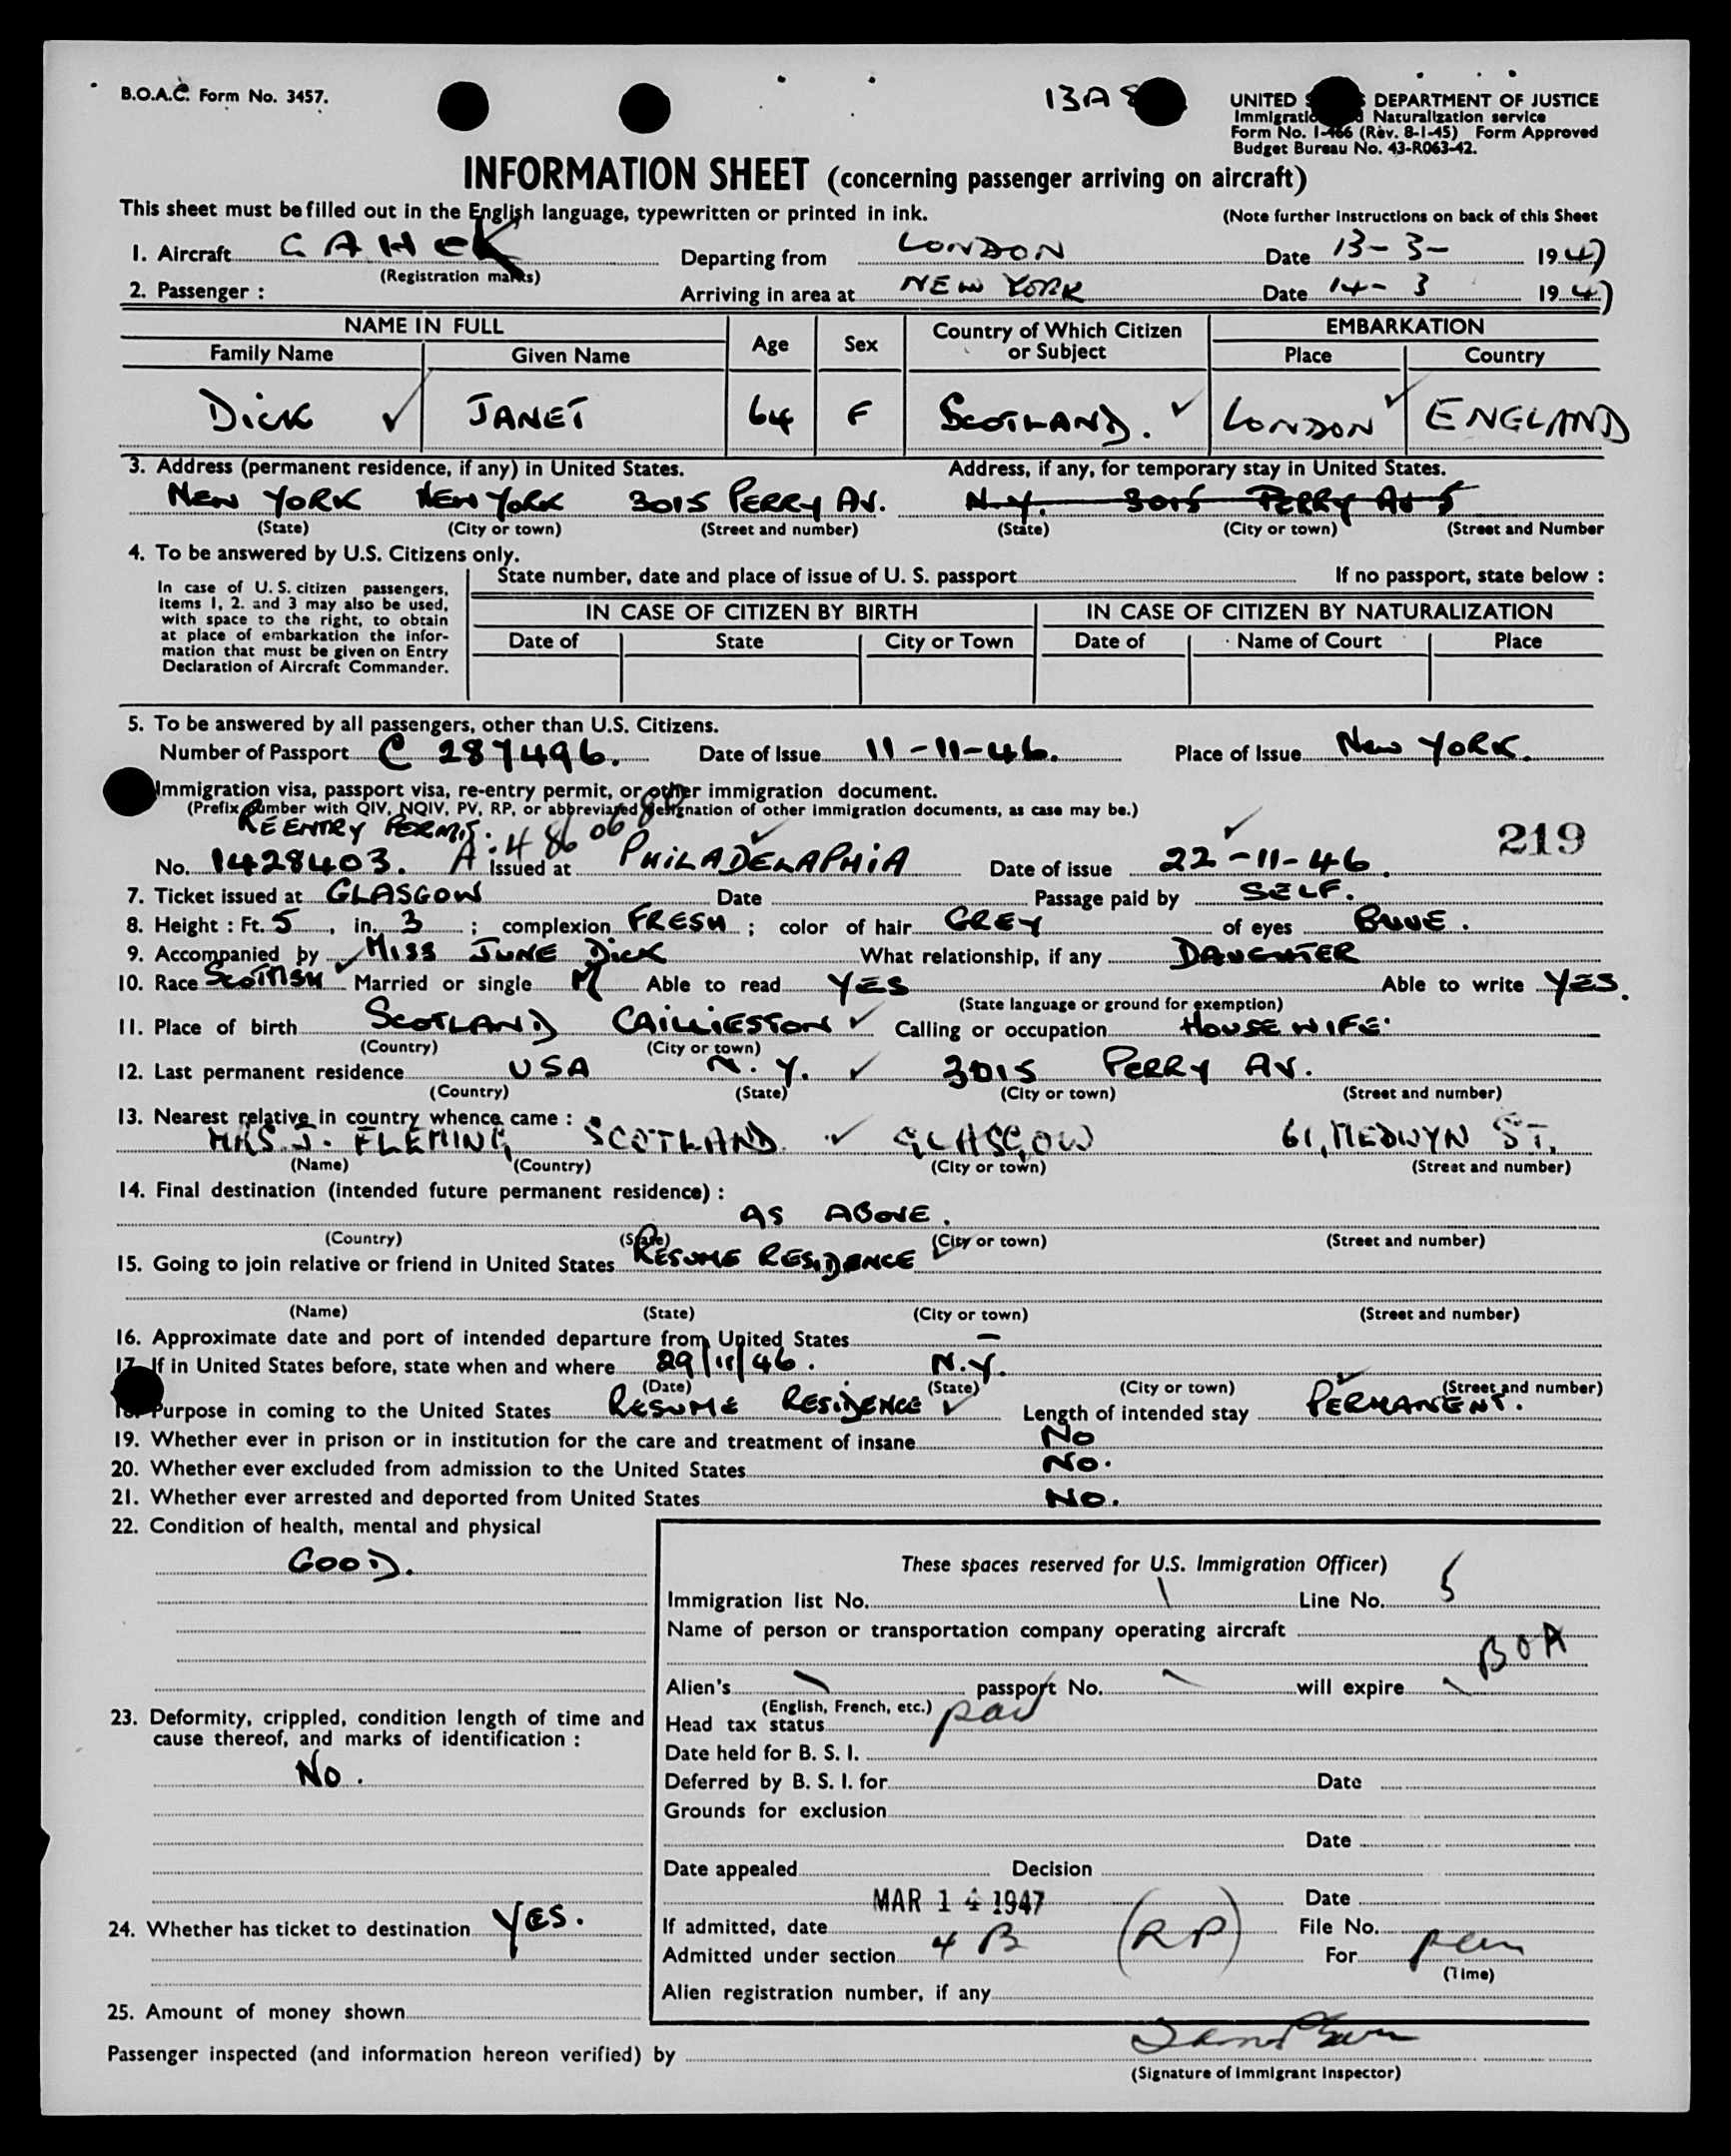 B.O.A.C. Form No. 3457.
13A
UNITED S DEPARTMENT OF JUSTICE
Immigratio d Naturalization service
Form No. I-466 (Rev. 8-1-45) Form Approved
Budget Bureau No. 43-R063-42.
INFORMATION SHEET (concerning passenger arriving on aircraft)
This sheet must be filled out in the English language, typewritten or printed in ink. (Note further Instructions on back of this Sheet
1. Aircraft G A H E K Departing from LONDON Date 13-3- 1947
(Registration marks)
2. Passenger : Arriving in area at NEW YORK Date 14-3 1947
NAME IN FULL Age Sex Country of Which Citizen or Subject EMBARKATION
Family Name Given Name Place Country
DICK JANET 64 F SCOTLAND. LONDON ENGLAND
3. Address (permanent residence, if any) in United States. Address, if any, for temporary stay in United States.
NEW YORK NEW YORK 3015 PERRY AV. N.Y. 3015 PERRY AV
(State) (City or town) (Street and number) (State) (City or town) (Street and Number
4. To be answered by U.S. Citizens only.
In case of U.S. citizen passengers, Items 1, 2. and 3 may also be used, with space to the right, to obtain at place of embarkation the information that must be given on Entry Declaration of Aircraft Commander.
State number, date and place of issue of U. S. passport If no passport, state below :
IN CASE OF CITIZEN BY BIRTH IN CASE OF CITIZEN BY NATURALIZATION
Date of State City or Town Date of Name of Court Place
5. To be answered by all passengers, other than U.S. Citizens.
Number of Passport C 287496. Date of Issue 11-11-46. Place of Issue New YORK.
Immigration visa, passport visa, re-entry permit, or other immigration document.
(Prefix number with QIV, NQIV, PV, RP, or abbreviated designation of other immigration documents, as case may be.)
REENTRY PERMIT. A.4 86 06 80 219
No. 1428403. Issued at PHILADELAPHIA Date of issue 22-11-46.
7. Ticket issued at GLASGOW Date Passage paid by SELF.
8. Height : Ft. 5, in. 3 ; complexion FRESH ; color of hair GREY of eyes BLUE.
9. Accompanied by MISS JUNE DICK What relationship, if any DAUGHTER
10. Race SCOTTISH Married or single M Able to read YES Able to write YES.
(State language or ground for exemption)
11. Place of birth SCOTLAND CAILLIESTON Calling or occupation HOUSEWIFE
(Country) (City or town)
12. Last permanent residence USA N.Y. 3015 PERRY AV.
(Country) (State) (City or town) (Street and number)
13. Nearest relative in country whence came :
MRS J. FLEMING SCOTLAND GLASGOW 61, MEDWYN ST.
(Name) (Country) (City or town) (Street and number)
14. Final destination (intended future permanent residence) :
AS ABOVE.
(Country) (State) (City or town) (Street and number)
15. Going to join relative or friend in United States RESUME RESIDENCE
(Name) (State) (City or town) (Street and number)
16. Approximate date and port of intended departure from United States –
17. If in United States before, state when and where 29/11/46. N.Y.
(Date) (State) (City or town) (Street and number)
18. Purpose in coming to the United States RESUME RESIDENCE Length of intended stay PERMANENT.
19. Whether ever in prison or in institution for the care and treatment of insane No
20. Whether ever excluded from admission to the United States No.
21. Whether ever arrested and deported from United States No.
22. Condition of health, mental and physical
GOOD.
23. Deformity, crippled, condition length of time and cause thereof, and marks of identification :
No.
24. Whether has ticket to destination YES.
25. Amount of money shown
These spaces reserved for U.S. Immigration Officer)
Immigration list No. 1 Line No. 5
Name of person or transportation company operating aircraft
BOA
Alien's passport No. will expire
(English, French, etc.)
Head tax status paid
Date held for B. S. I.
Deferred by B. S. I. for Date
Grounds for exclusion
Date
Date appealed Decision
MAR 14 1947 Date
If admitted, date File No.
Admitted under section 4 B (RP) For perm
(Time)
Alien registration number, if any
Passenger inspected (and information hereon verified) by
(Signature of Immigrant Inspector)